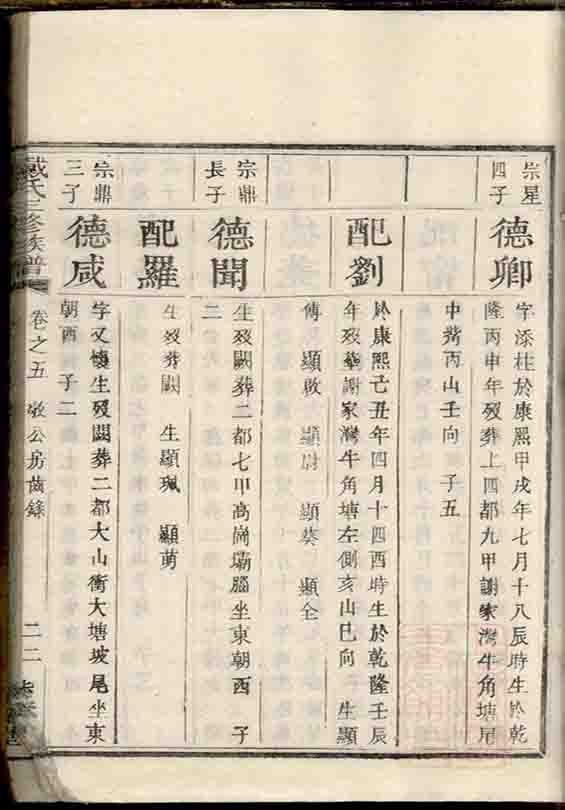 宗星
四子
德卿
字添柱於康熙甲戌年七月十八辰時生於乾
隆丙申年歿葬上四都九甲謝家灣牛角塘尾
中嘴丙山壬向 子五
配劉
於康熙己丑年四月十四酉時生於乾隆壬辰
年歿葬謝家灣牛角塘左側亥山巳向 生顯
傳 顯啟 顯尉 顯葵 顯全
宗鼎
長子
德聞
生歿闕葬二都七甲高崗壩腦坐東朝西 子
二
配羅
生歿葬闕 生顯珮 顯萌
宗鼎
三子
德咸
字又懷生歿闕葬二都大山衝大塘坡尾坐東
朝西 子二
戴氏三修族譜
卷之五 敬公房齒錄
二二